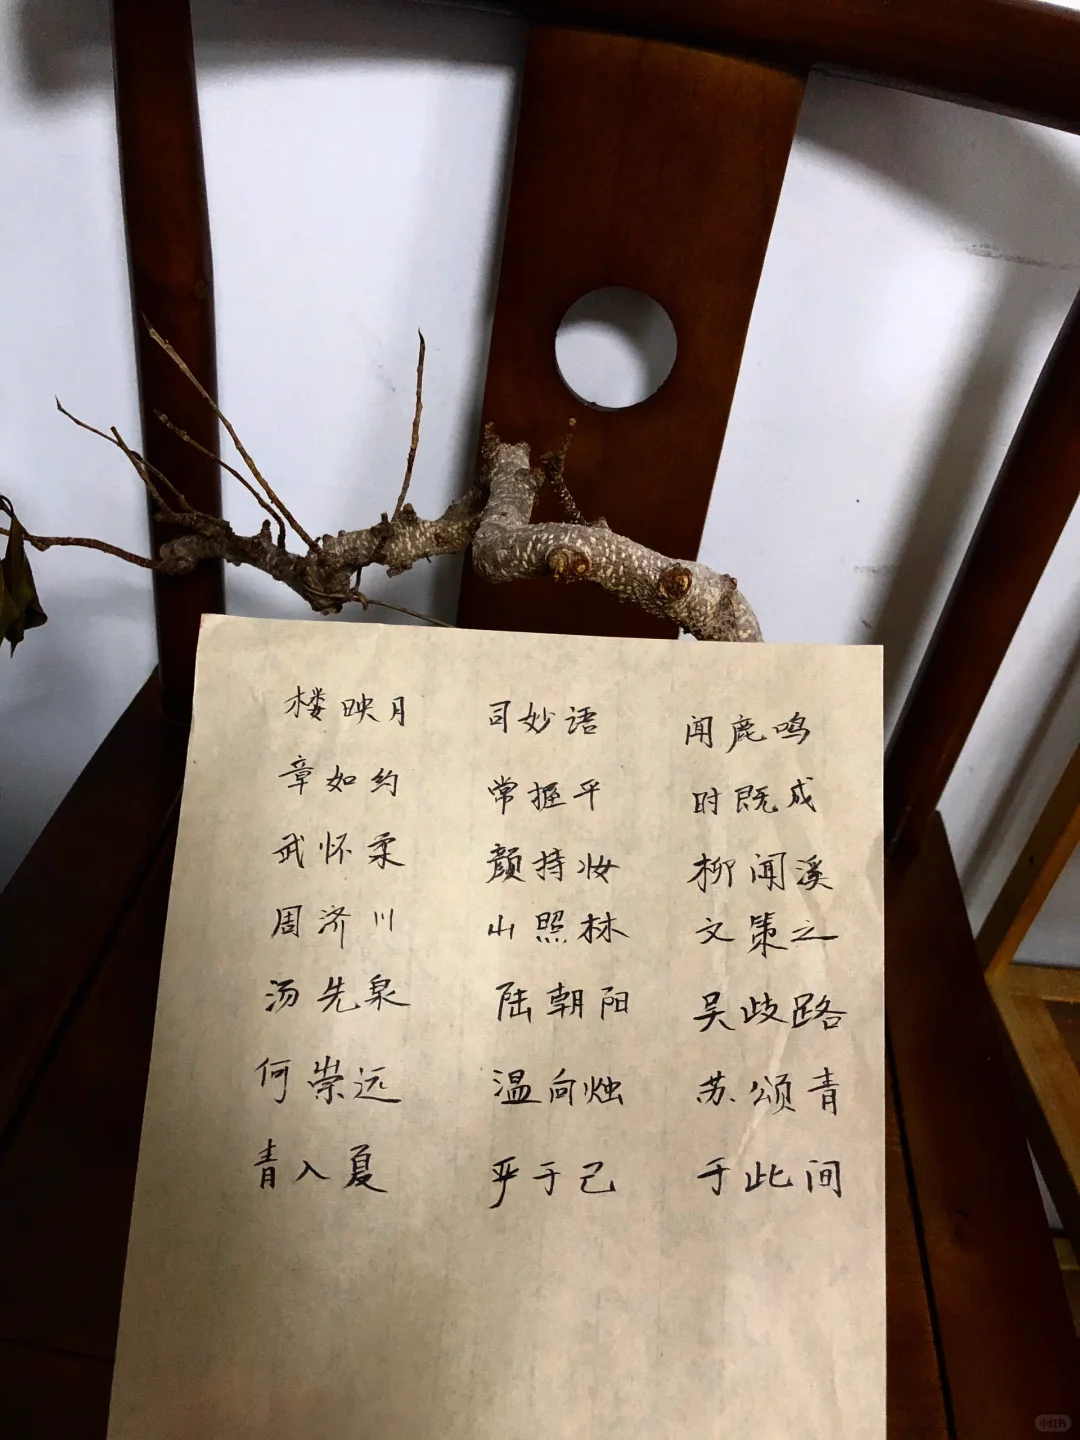 楼映月 司妙语 闻鹿鸣
章如约 常握平 时既成
武怀柔 颜持妆 柳闻溪
周济川 山照林 文策之
汤先泉 陆朝阳 吴歧路
何崇远 温向烛 苏颂青
青入夏 乎于己 于此间
小红书